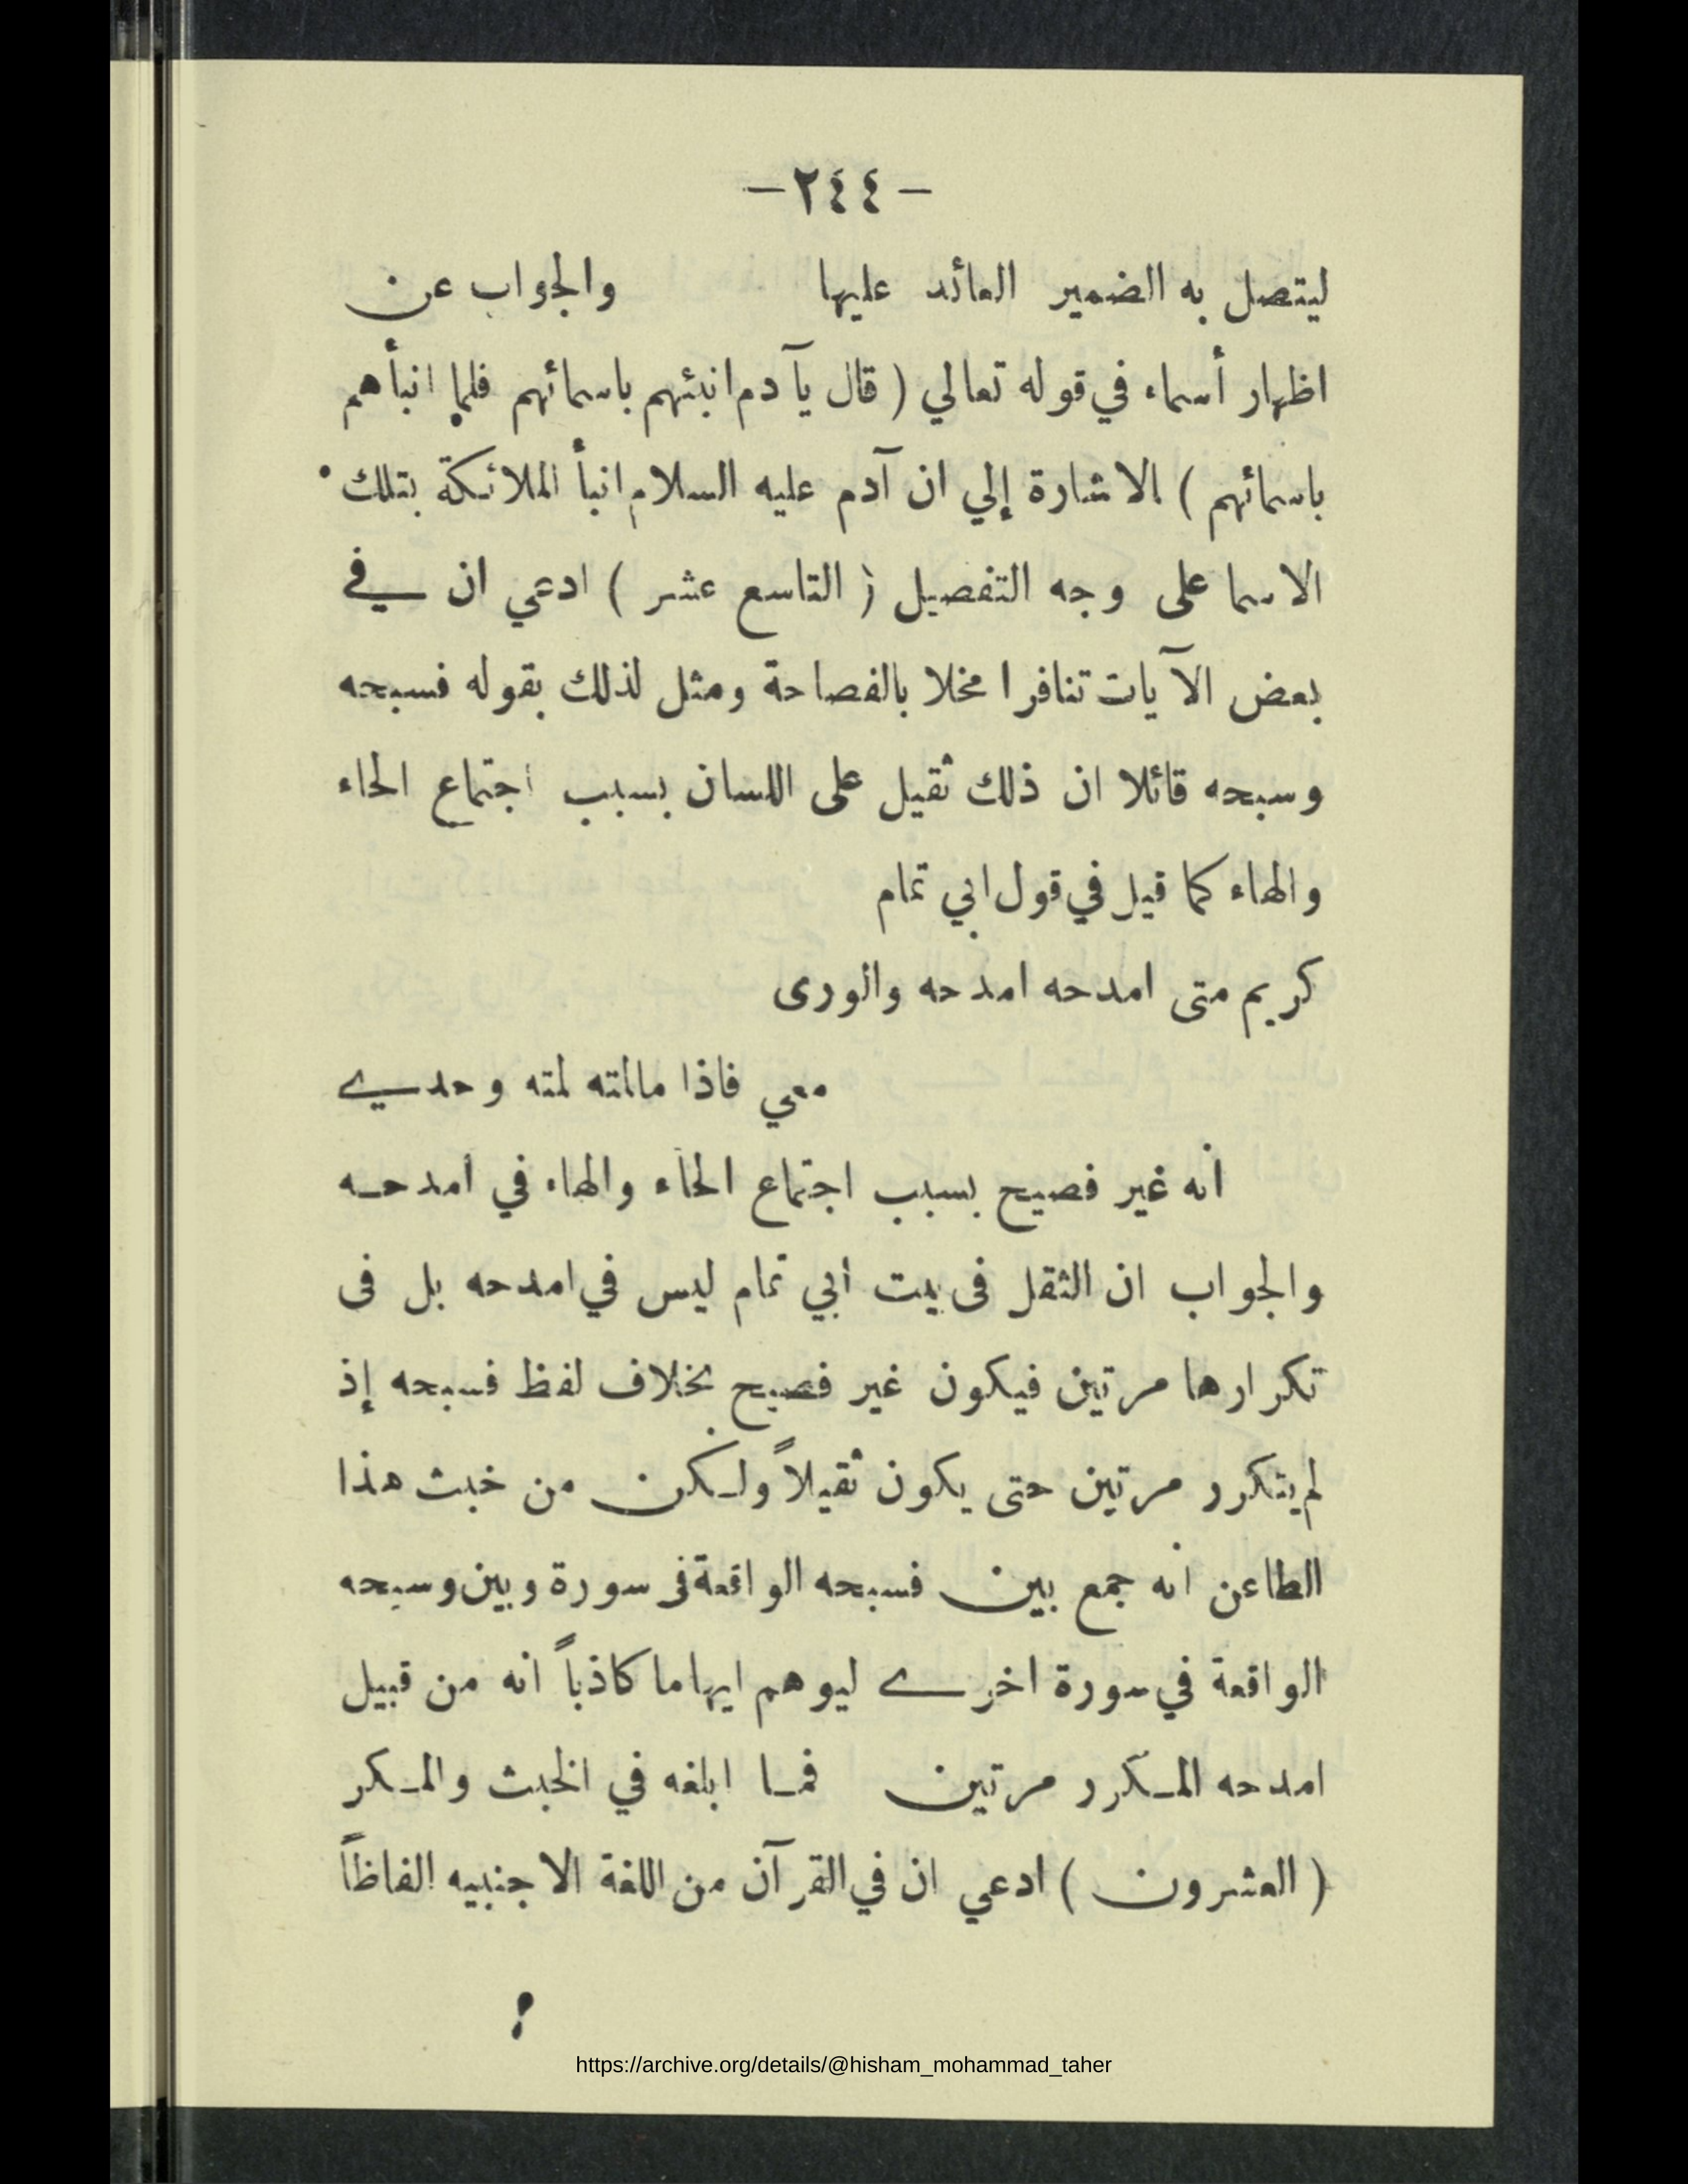 - ٢٤٤ -
ليتصل به الضمير العائد عليها والجواب عن
اظهار أسماء في قوله تعالي ( قال يآ دم انبئهم باسمائهم فلما انبأهم
باسمائهم ) الاشارة إلي ان آدم عليه السلام انبأ الملائكة بتلك
الاسما على وجه التفصيل ( التاسع عشر ) ادعي ان في
بعض الآيات تنافرا مخلا بالفصاحة ومثل لذلك بقوله فسبحه
وسبحه قائلا ان ذلك ثقيل على اللسان بسبب اجتماع الحاء
والهاء كما قيل في قول ابي تمام
كريم متى امدحه امدحه والورى
معي فاذا مالمته لمته وحدي
أنه غير فصيح بسبب اجتماع الحاء والهاء في امدحه
والجواب ان الثقل فى بيت أبي تمام ليس في امدحه بل فى
تكرارها مرتين فيكون غير فصيح بخلاف لفظ فسبحه إذ
لم يتكرر مرتين حتى يكون ثقيلاً ولكن من خبث هذا
الطاعن انه جمع بين فسبحه الواقعة فى سورة وبين وسبحه
الواقعة في سورة اخرى ليوهم ايهاما كاذباً انه من قبيل
امدحه المكرر مرتين فما ابلغه في الخبث والمكر
( العشرون ) ادعي ان في القرآن من اللغة الاجنبيه الفاظاً
https://archive.org/details/@hisham_mohammad_taher